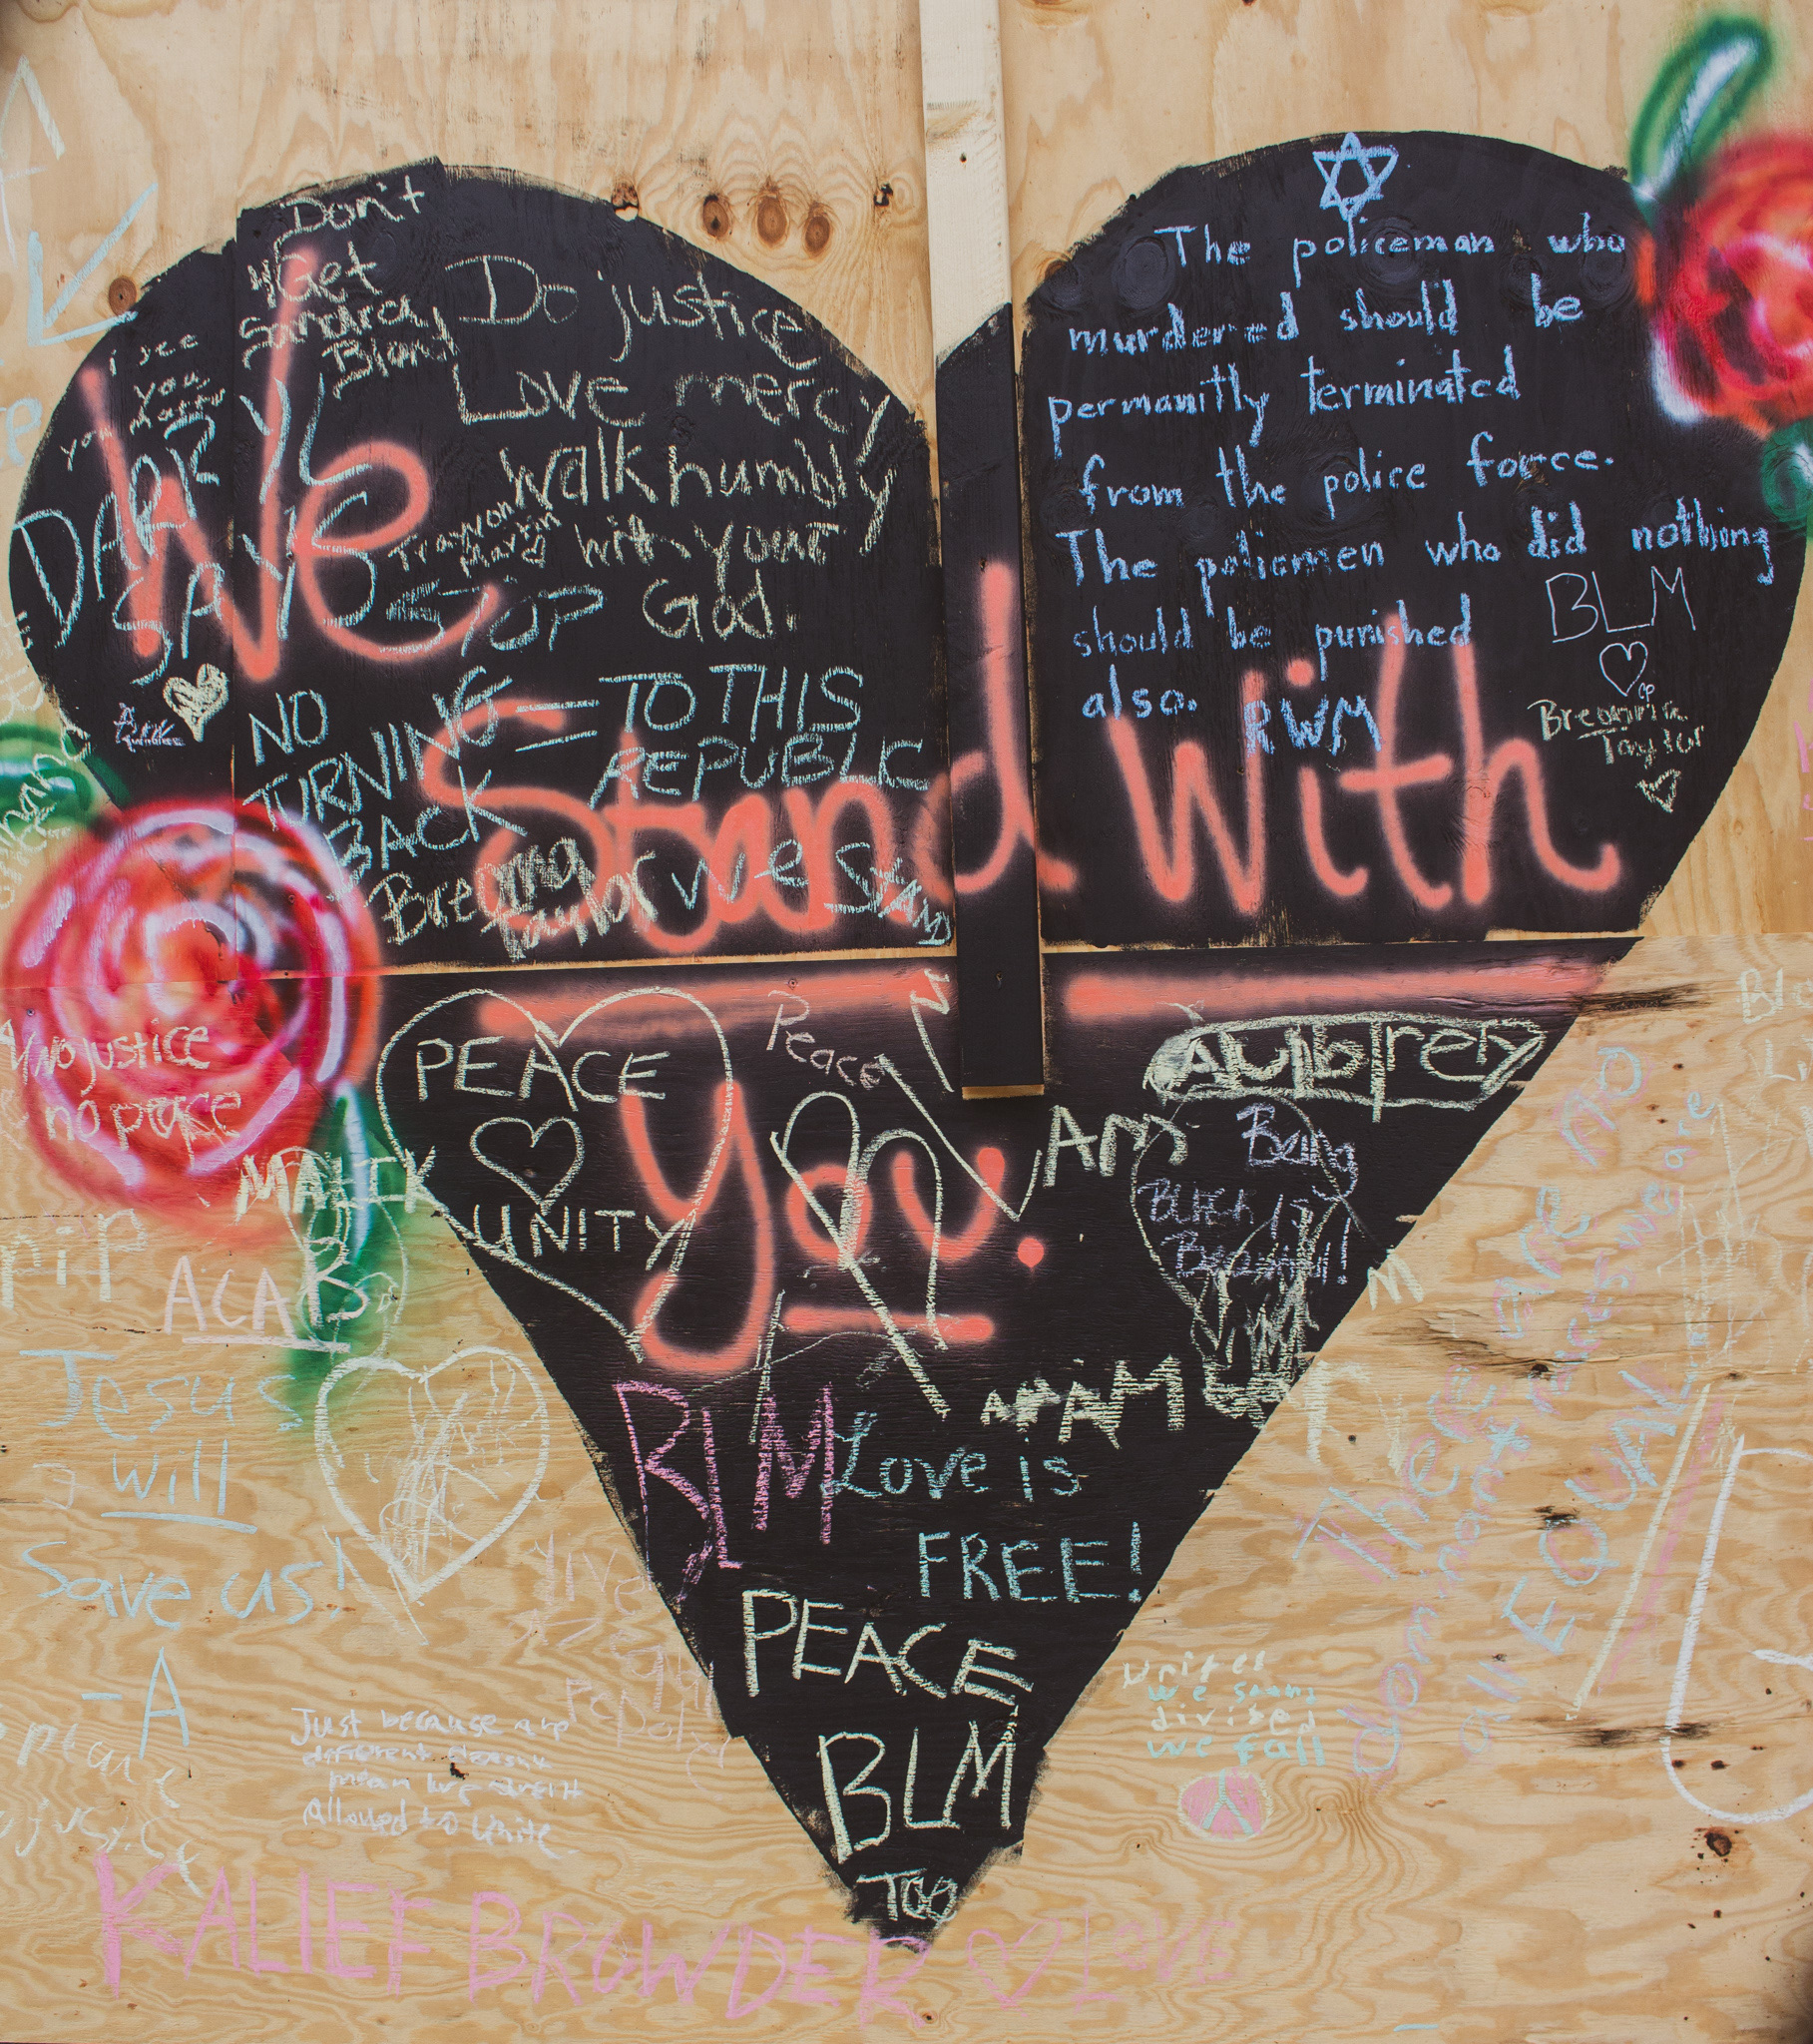 Don't
Get
Sandra
Bland
i see
You
DARRYL
SAYS
Do justice
Love mercy
Walk humbly
with your
God.
Trayvon
Martin
STOP
We
Stand With
You.
NO
TURNING = TO THIS
BACK
REPUBLIC
Breonna
Taylor we STAND
The policeman who
murdered should be
permanitly terminated
from the police force.
The policemen who did nothing
should be punished
also. RWM
BLM
Breonna
Taylor
No justice
no peace
MALIK
ACAB
PEACE
UNITY
Peace
AubreY
I AM
Being
Black is
Jesus
will
Save us!
-A
BLM
Love is
FREE!
PEACE
BLM
Too
There are no
don't
races we are
all EQUAL
we
divided
we fall
Just because are
mean
Allowed to Unite.
KALIEF BROWDER LOVE